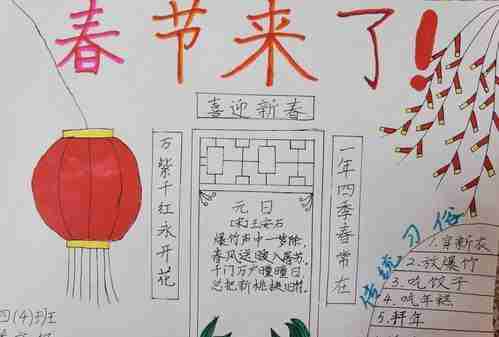 春节来了!
喜迎新春
万紫千红永开花
一年四季春常在
元日
[宋]王安石
爆竹声中一岁除,
春风送暖入屠苏。
千门万户曈曈日,
总把新桃换旧符。
传统习俗
1.穿新衣
2.放爆竹
3.吃饺子
4.吃年糕
5.拜年
四(4)班